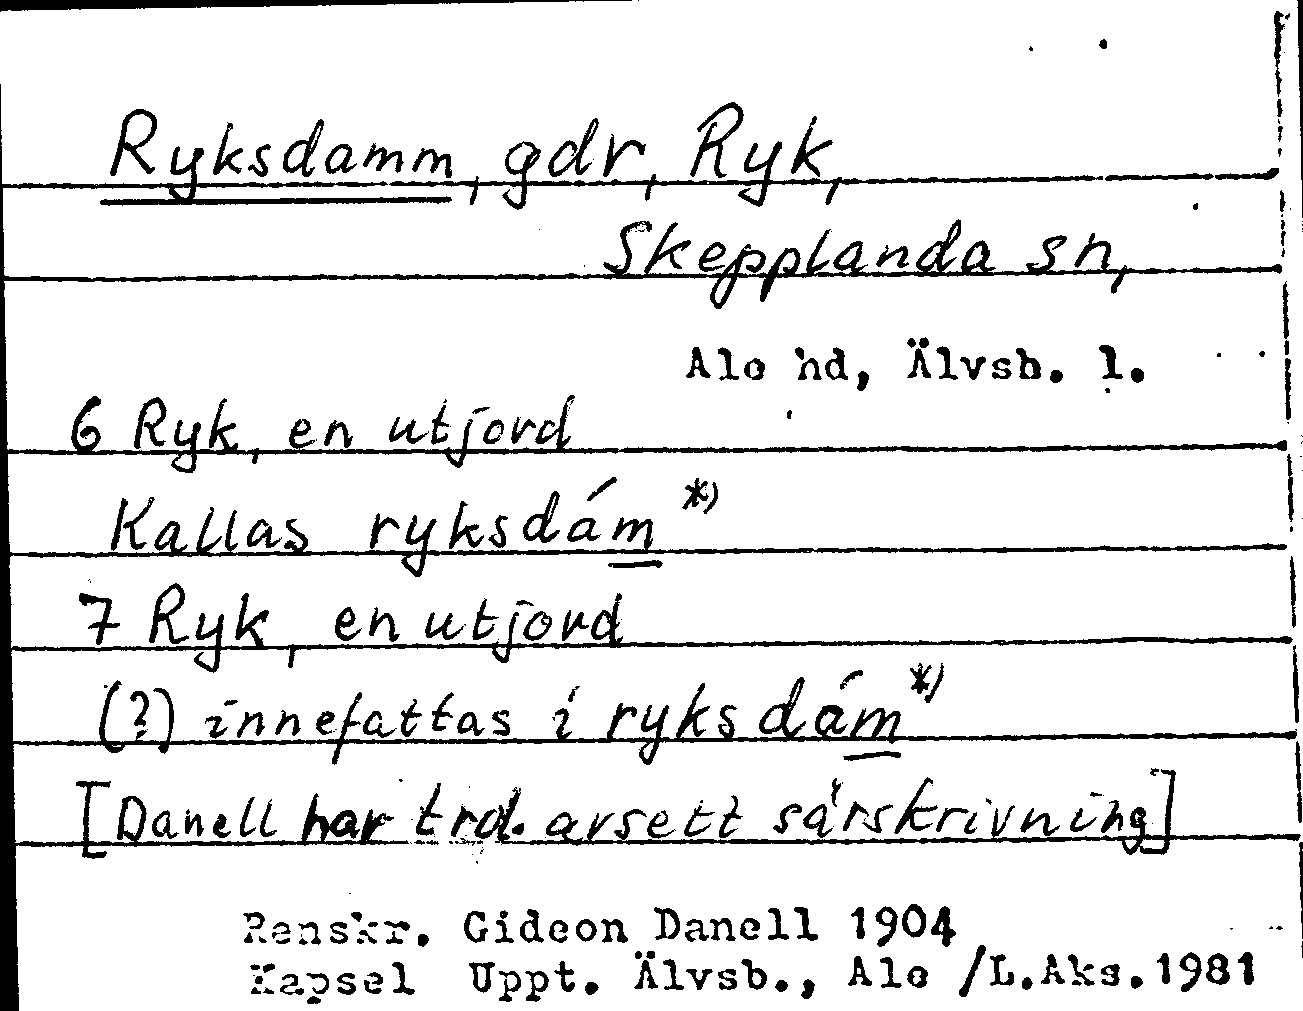 Ryksdamm, gdr, Ryk,
Skepplanda sn,
Ale hd, Älvsb. l.
6 Ryk, en utjord
Kallas ryksdám *)
7 Ryk, en utjord
(?) innefattas i ryksdám *)
[Danell har trol. avsett särskrivning]
Renskr. Gideon Danell 1904
Kapsel Uppt. Älvsb., Ale /L.Aks.1981